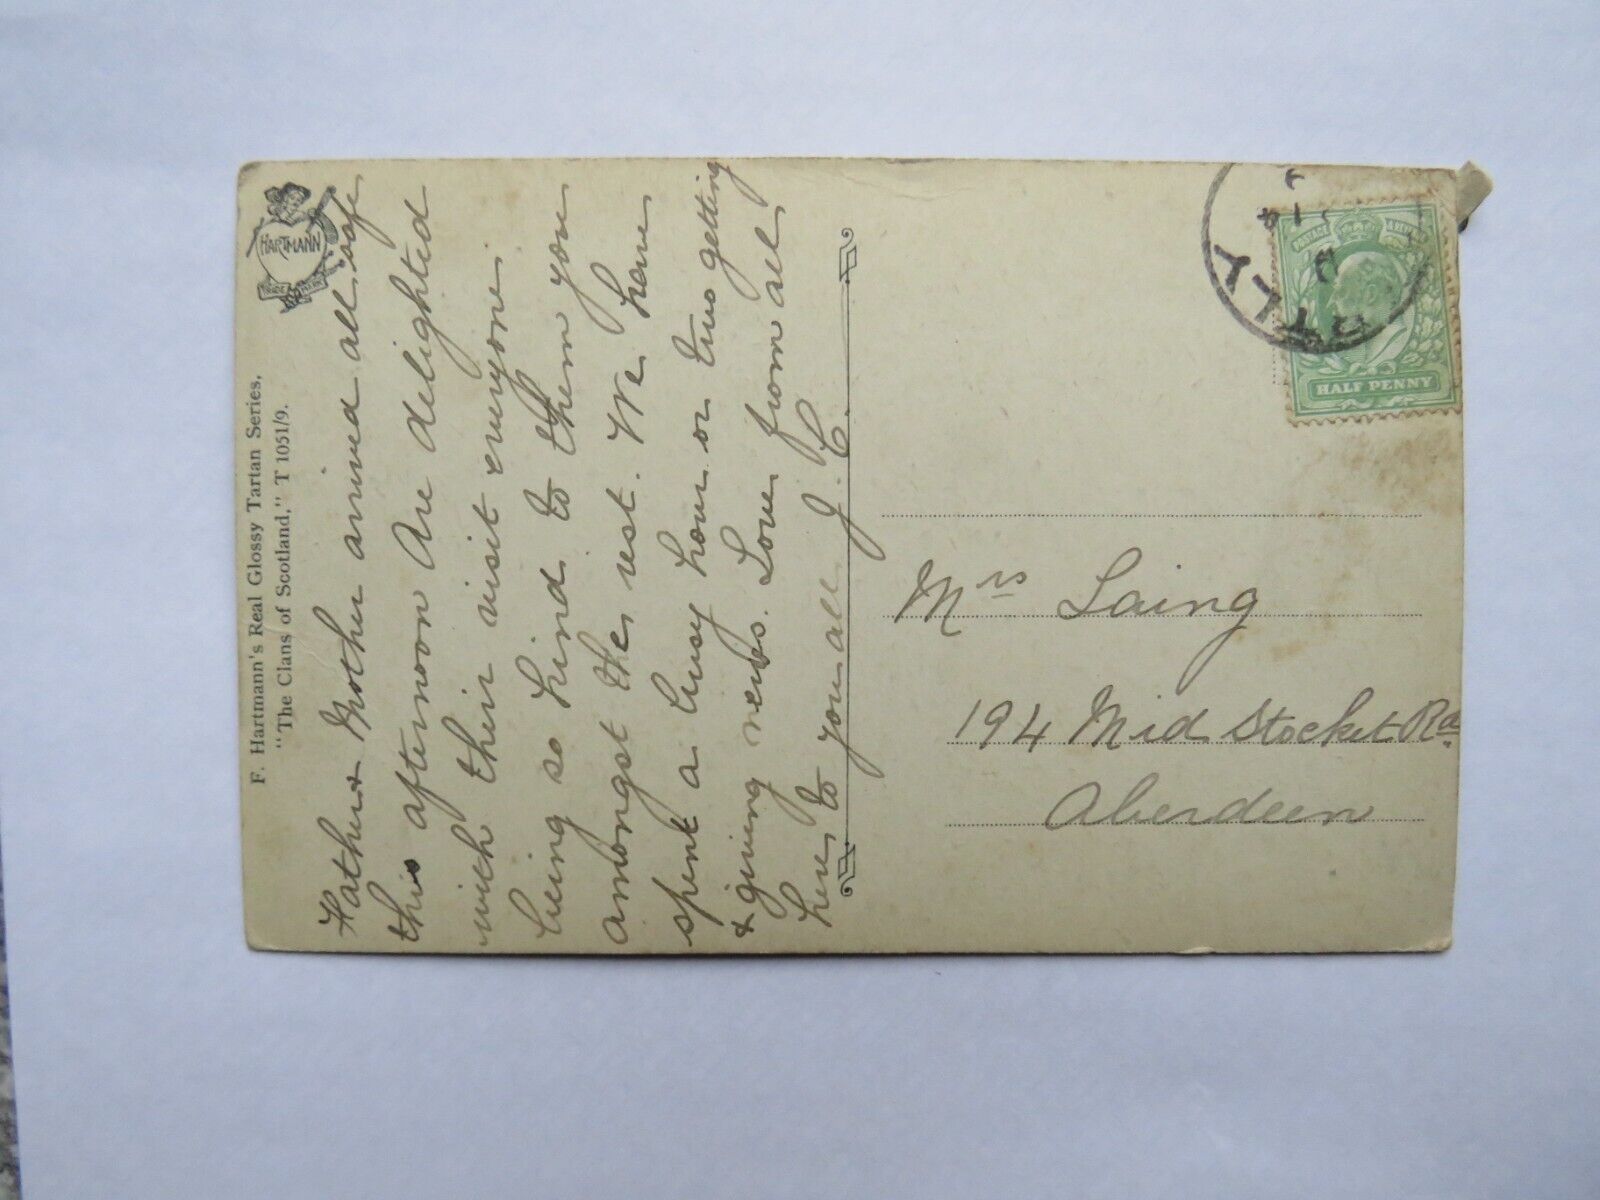 F. Hartmann's Real Glossy Tartan Series,
"The Clans of Scotland," T 1051/9.
HARTMANN
TRADE MARK
Father & Mother arrived all safe
this afternoon Are delighted
with their visit everyone
being so kind to them you
amongst the rest. We have
spent a busy hour or two getting
& giving news. Love from all
here to you all J. C.
Mrs Laing
194 Mid Stocket Rd.
Aberdeen
POSTAGE & REVENUE
HALF PENNY